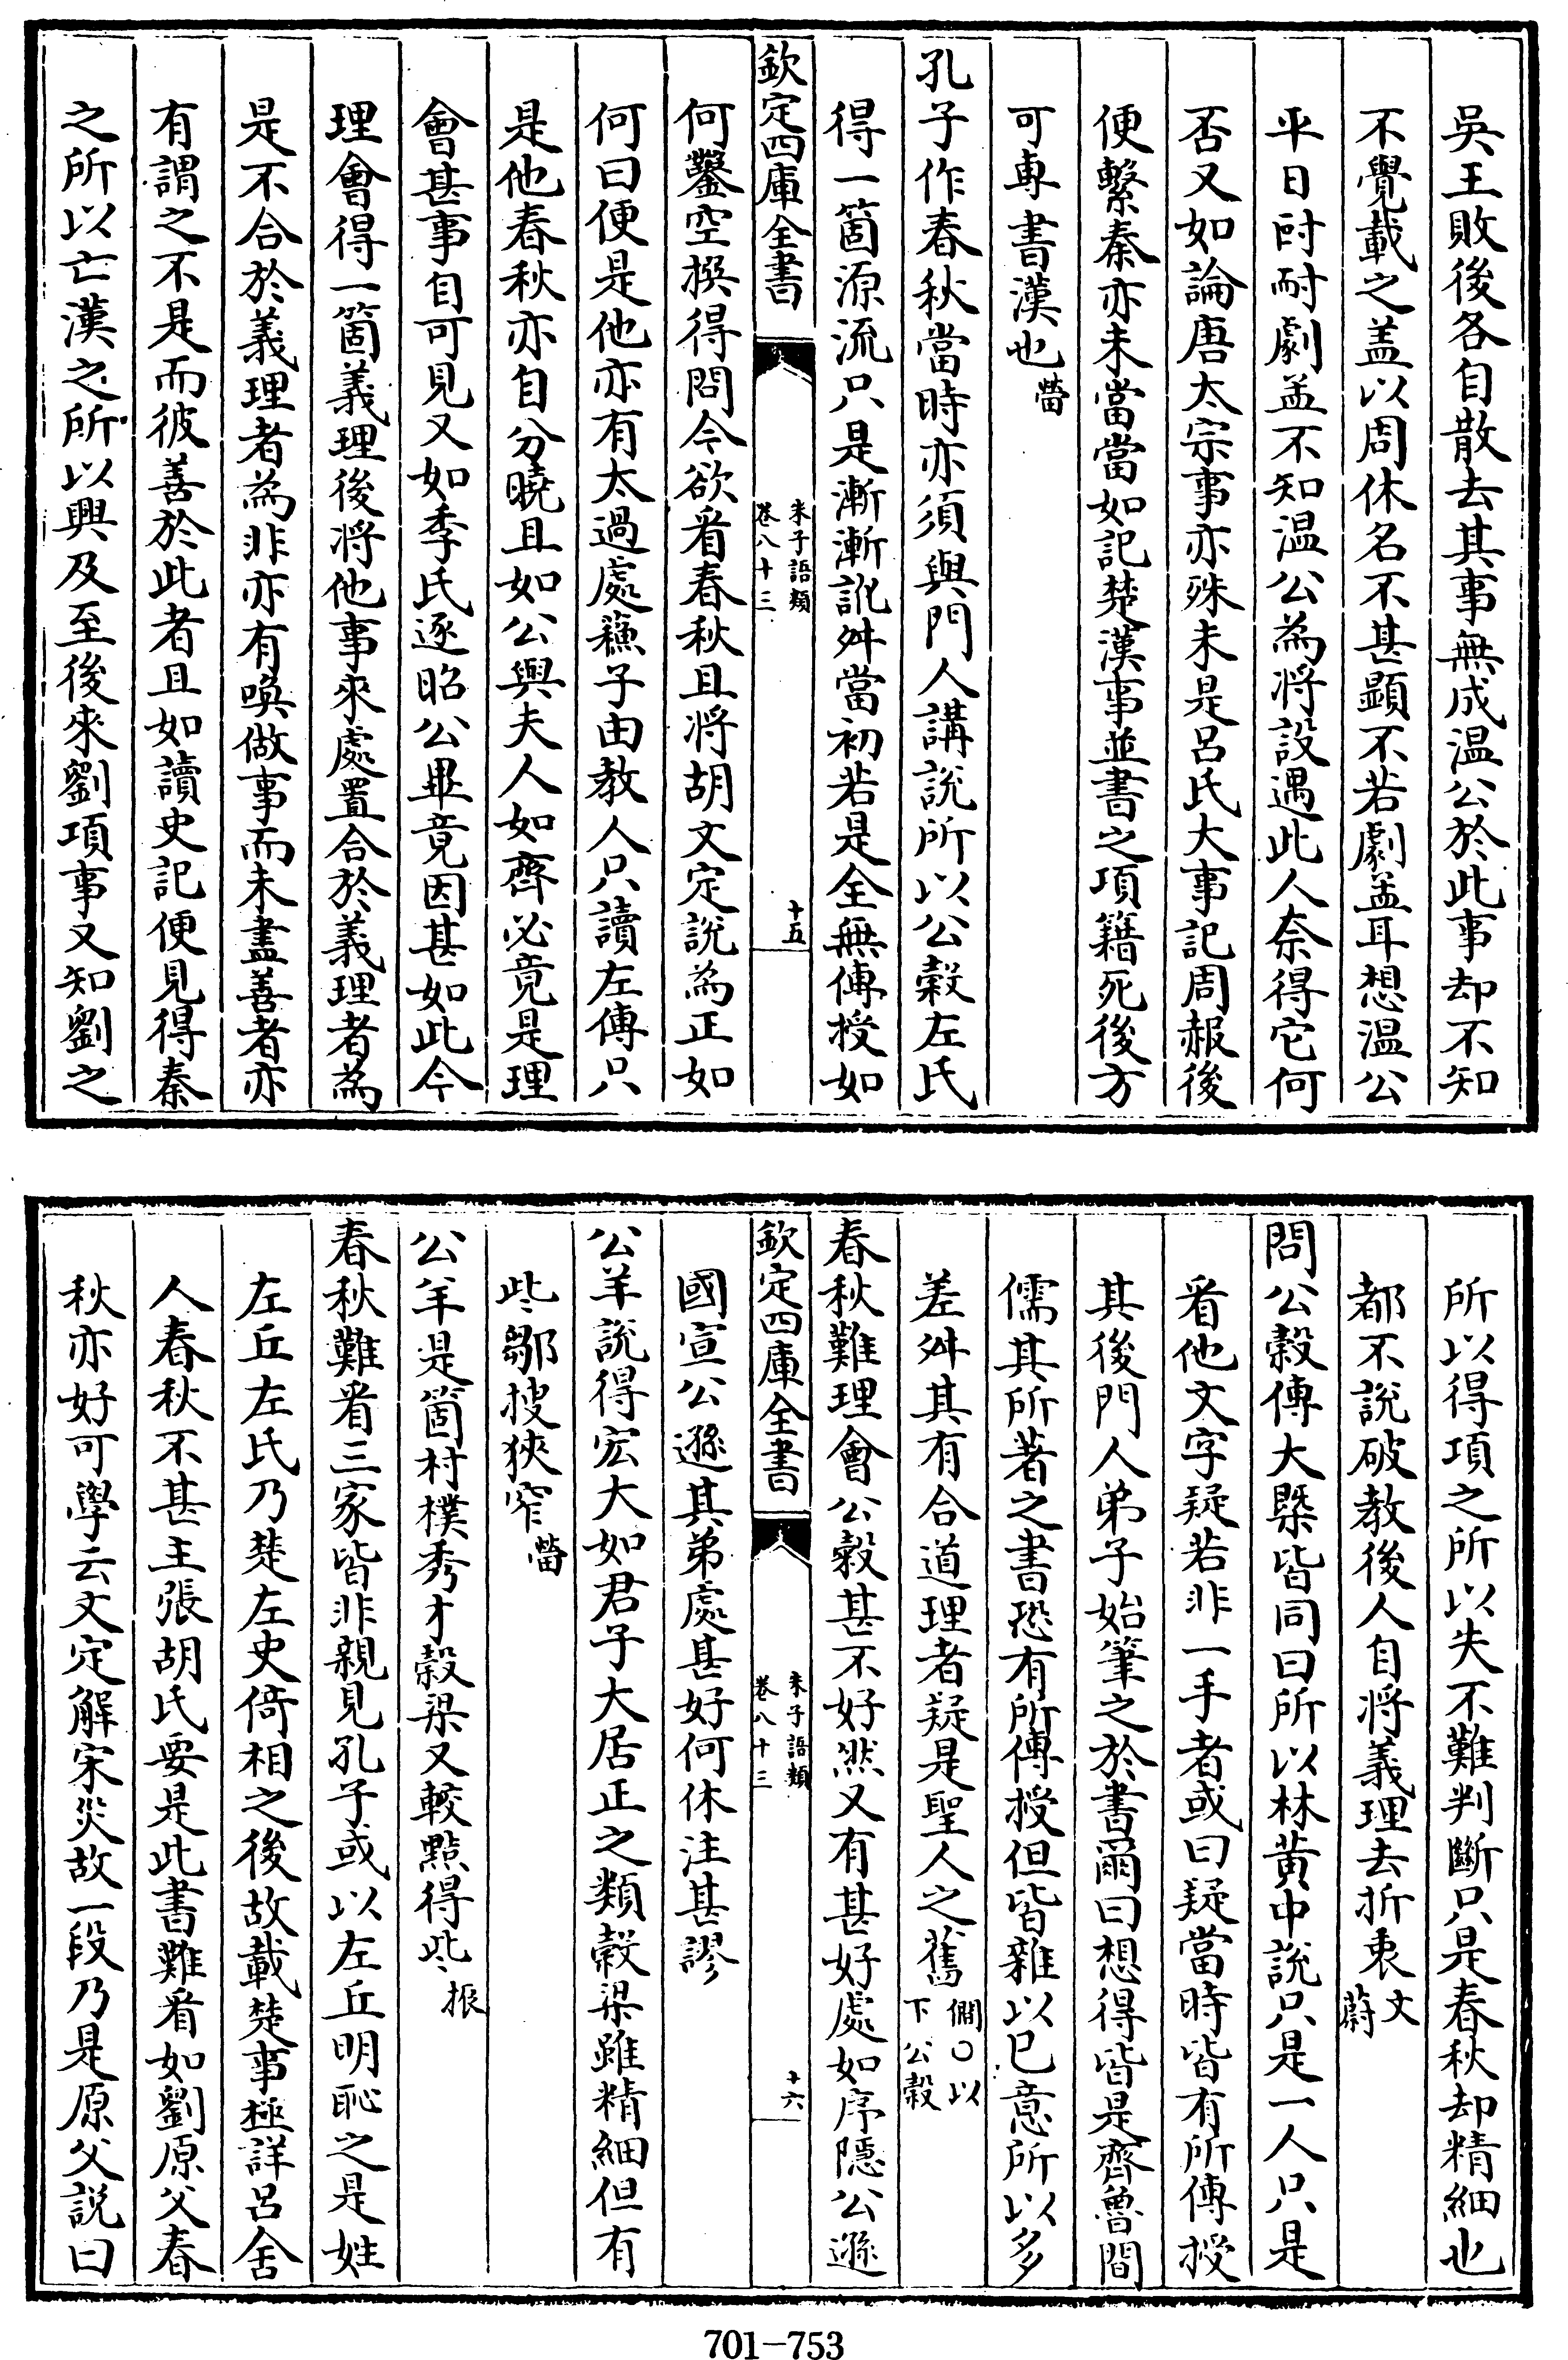 吳王敗後各自散去其事無成温公於此事却不知
不覺載之盖以周休名不甚顯不若劇孟耳想温公
平日尀耐劇孟不知温公為將設遇此人奈得它何
否又如論唐太宗事亦殊未是呂氏大事記周赧後
便繫秦亦未當當如記楚漢事並書之項籍死後方
可專書漢也㽦
孔子作春秋當時亦須與門人講說所以公穀左氏
得一箇源流只是漸漸訛舛當初若是全無傳授如
欽定四庫全書
朱子語類
卷八十三
十五
何鑿空撰得問今欲看春秋且將胡文定說為正如
何曰便是他亦有太過處蘇子由教人只讀左傳只
是他春秋亦自分曉且如公與夫人如齊必竟是理
會甚事自可見又如季氏逐昭公畢竟因甚如此今
理會得一箇義理後將他事來處置合於義理者為
是不合於義理者為非亦有喚做事而未盡善者亦
有謂之不是而彼善於此者且如讀史記便見得秦
之所以亡漢之所以興及至後來劉項事又知劉之
所以得項之所以失不難判斷只是春秋却精細也
都不說破教後人自將義理去折衷文
蔚
問公穀傳大槩皆同曰所以林黄中說只是一人只是
看他文字疑若非一手者或曰疑當時皆有所傳授
其後門人弟子始筆之於書爾曰想得皆是齊魯間
儒其所著之書恐有所傳授但皆雜以已意所以多
差舛其有合道理者疑是聖人之舊僩○以
下公穀
春秋難理會公穀甚不好然又有甚好處如序隱公遜
欽定四庫全書
朱子語類
卷八十三
十六
國宣公遜其弟處甚好何休注甚謬
公羊說得宏大如君子大居正之類榖梁雖精細但有
些鄒搜狹窄㽦
公羊是箇村樸秀才榖梁又較黠得些振
春秋難看三家皆非親見孔子或以左丘明恥之是姓
左丘左氏乃楚左史倚相之後故載楚事極詳呂舍
人春秋不甚主張胡氏要是此書難看如劉原父春
秋亦好可學云文定解宋災故一段乃是原父説曰
701-753